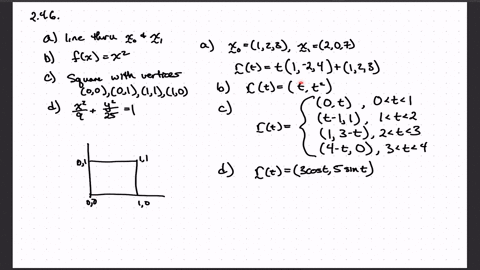 2.4.6.
a) line thru x₀ & x₁
b) f(x) = x²
c) Square with vertices
(0,0), (0,1), (1,1), (1,0)
d) x²/9 + y²/25 = 1
0,1 1,1
0,0 1,0
a) x₀ = (1,2,3), x₁ = (2,0,7)
r(t) = t(1,-2,4) + (1,2,3)
b) r(t) = (t, t²)
c)
r(t) = { (0,t), 0<t<1
(t-1,1), 1<t<2
(1,3-t), 2<t<3
(4-t,0), 3<t<4
d) r(t) = (3cost, 5sint)